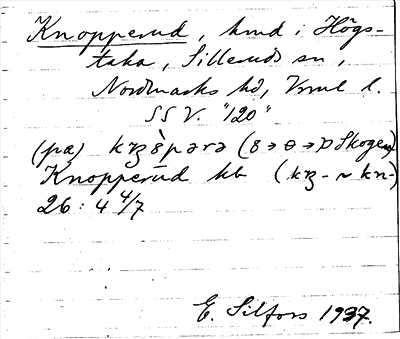 Knopperud, hmd i Högs-
taka, Silleruds sn,
Nordmarks hd, Vrml l.
SS V. "120"
(på) (8→ɵ→ Skogen)
Knopperud kb (kn-)
26 : 4 4/7
E. Silfors 1937.